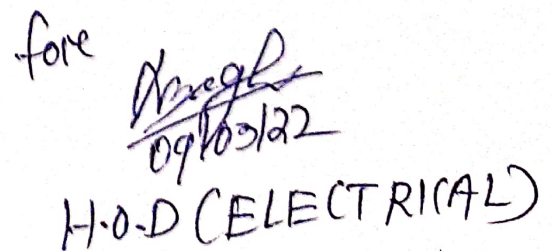 fore
09/03/22
H.O.D (ELECTRICAL)